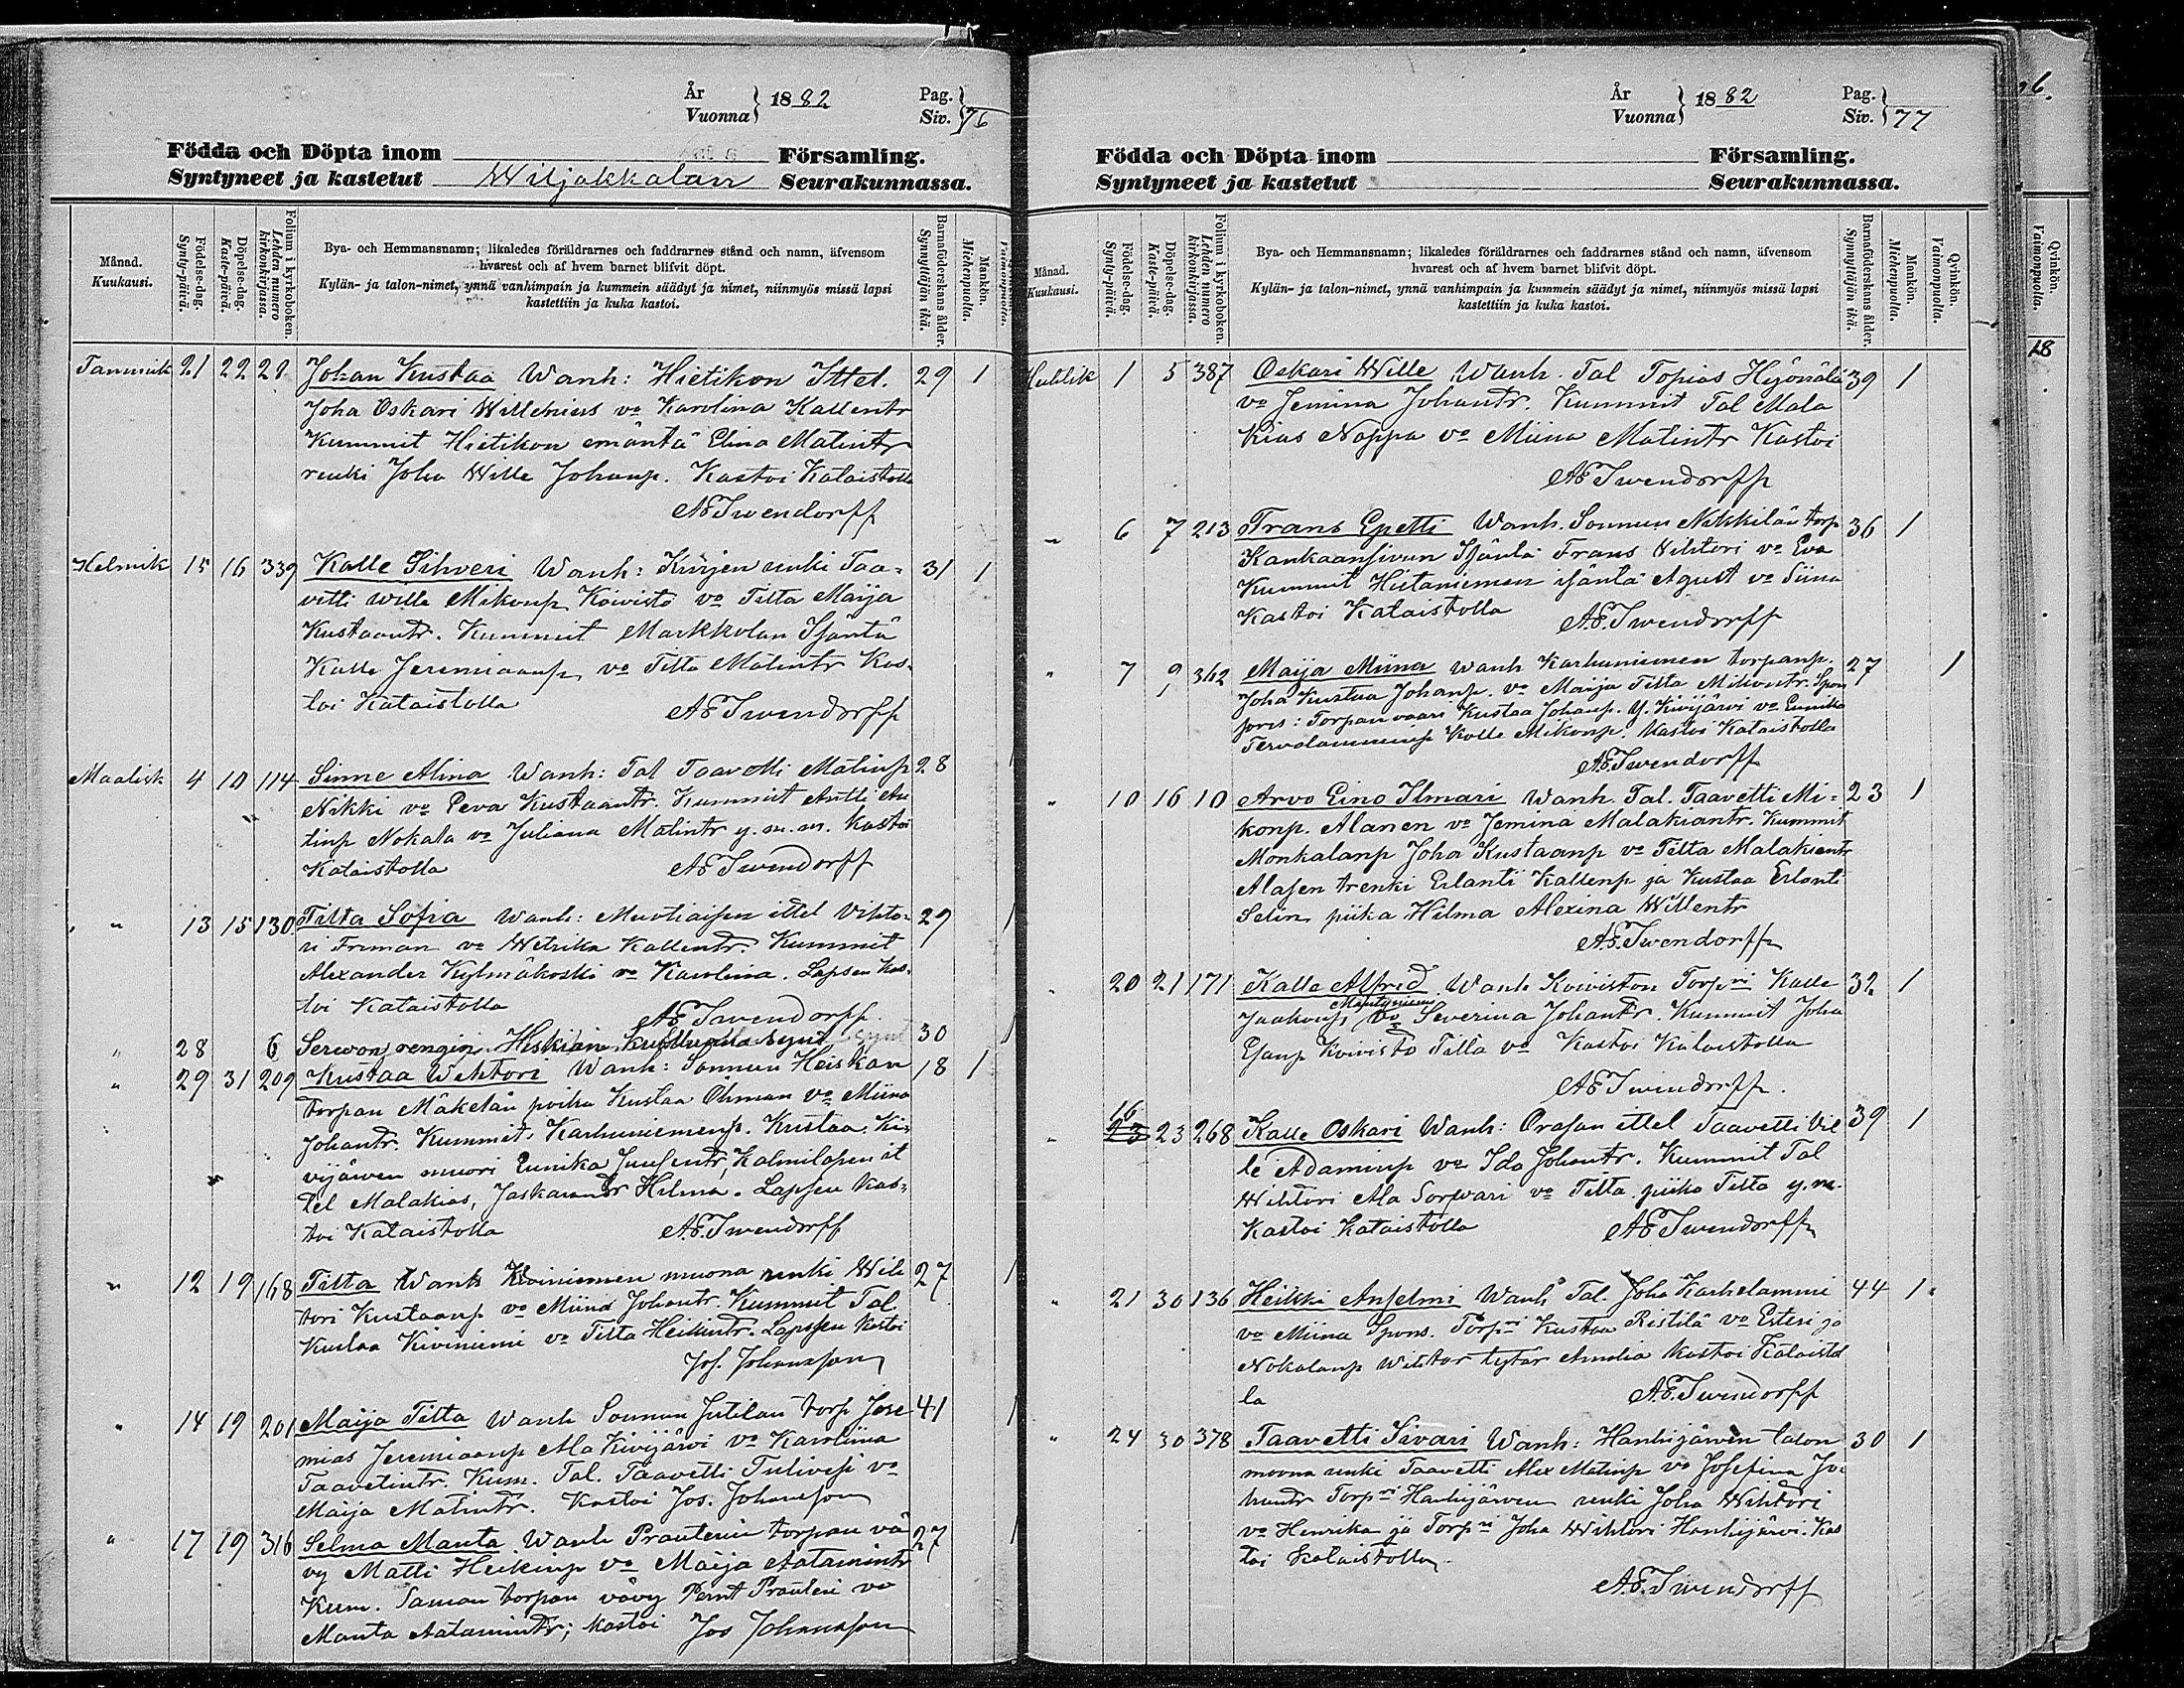 År
Vuonna } 1882
Pag.
Siv. } 76
Födda och Döpta inom Församling.
Syntyneet ja kastetut Wiljakkalan Seurakunnassa.
Månad.
Kuukausi.
Födelse-dag.
Synty-päivä.
Döpelse-dag.
Kaste-päivä.
Folium i kyrkoboken.
Lehden numero kirkonkirjassa.
Bya- och Hemmansnamn; likaledes föräldrarnes och faddrarnes stånd och namn, äfvensom
hvarest och af hvem barnet blifvit döpt.
Kylän- ja talon-nimet, ynnä vanhimpain ja kummein säädyt ja nimet, niinmyös missä lapsi
kastettiin ja kuka kastoi.
Barnaföderskans ålder.
Synnyttäjän ikä.
Mankön.
Miehenpuolia.
Vaimonpuolia.
Tammik 21 22 28 Johan Kustaa Wanh: Hietikon Ittel. 29 1
Joha Oskari Willenius vo Karolina Kallentr
Kummit Hietikon emäntä Elina Matintr
renki Joha Wille Johanp. Kastoi Kataistolla
AETwendorff
Helmik 15 16 339 Kalle Sihveri Wanh: Kurjen renki Taa= 31 1
vetti Wille Mikonp Koivisto vo Tilta Maija
Kustaantr. Kummit Markkolan Isäntä
Kalle Jeremiaanp vo Tilta Matintr Kas-
toi Kataistolla AETwendorff
Maalisk 4 10 114 Sinne Alina Wanh: Tal Taavetti Matinp 28
Nikki vo Eeva Kustaantr. Kummit Antti An
tinp Nokala vo Juliana Matintr y.m.m. Kastoi
Kataistolla AETwendorff
" 13 15 130 Tilta Sofia Wanh: ittel Vihto- 29 1
ri Friman vo Wetrika Kallentr. Kummit
Alexander Kylmäkoski vo Karolina. Lapsen Kas-
toi Kataistolla AETwendorff
" 28 6 rengin Heskian synt 30 1
" 29 31 209 Kustaa Wihtori Wanh: Sonnun Heiskan 18 1
torpan Mäkelän poika Kustaa Öhman vo Miina
Johantr. Kummit, Karhuniemenp. Kustaa Ki-
vijärven muori Eunika Juusentr, Kalmilapen it
tel Malakias, Hilma. Lapsen Kas-
toi Kataistolla A.E.Twendorff
" 12 19 168 Tilta Wanh Kiviniemen muona renki Wih 27 1
tori Kustaanp vo Miina Johantr. Kummit Tal.
Kustaa Kiviniemi vo Tilta Heikintr. Lapsen Kastoi
Jos. Johansson
" 14 19 201 Maija Tilta Wanh Sonnun Jutilan torp Jere 41 1
mias Jeremiaanp Ala Kivijärvi vo Karoliina
Taavetintr. Kum. Tal. Taavetti Tulivesi vo
Maija Matintr. Kastoi Jos. Johansson
" 17 19 316 Selma Manta Wanh Prauterin torpan vä 27 1
vy Matti Heikinp vo Maija Aatamintr
Kum. Saman torpan vävy Pernt Prauteri vo
Manta Aatamintr; Kastoi Jos Johansson
År
Vuonna } 1882
Pag.
Siv. } 77
Födda och Döpta inom Församling.
Syntyneet ja kastetut Seurakunnassa.
Månad.
Kuukausi.
Födelse-dag.
Synty-päivä.
Döpelse-dag.
Kaste-päivä.
Folium i kyrkoboken.
Lehden numero kirkonkirjassa.
Bya- och Hemmansnamn; likaledes föräldrarnes och faddrarnes stånd och namn, äfvensom
hvarest och af hvem barnet blifvit döpt.
Kylän- ja talon-nimet, ynnä vanhimpain ja kummein säädyt ja nimet, niinmyös missä lapsi
kastettiin ja kuka kastoi.
Barnaföderskans ålder.
Synnyttäjän ikä.
Mankön.
Miehenpuolia.
Qvinkön.
Vaimonpuolia.
Huhtik 1 5 387 Oskari Wille Wanh. Tal Topias Hyönälä 39 1
vo Jemina Johantr. Kummit Tal Mala
kias Noppa vo Miina Matintr Kastoi
AETwendorff
" 6 7 213 Frans Epetti Wanh. Sonnun Nikkilän torp 36 1
Kankaansivun Isäntä Frans Wihtori vo Eva
Kummit Hietaniemen isäntä Agust vo Siina
Kastoi Kataistolla A.E.Twendorff
" 7 9 362 Maija Miina Wanh Karhuniemen torpanp. 27 1
Joha Kustaa Johanp. vo Maija Tilta Mikontr. Spon
sores: Torpanvaari Kustaa Johanp. Y. Kivijärvi vo Eunika
Tervalammenp Kalle Mikonp. Kastoi Kataistolla
A.E.Twendorff
" 10 16 10 Arvo Eino Ilmari Wanh. Tal. Taavetti Mi- 23 1
konp. Alanen vo Jemina Malakiantr. Kummit
Monkalanp Joha Kustaanp vo Tilta Malakiantr
Alasen trenki Erlanti Kallenp ja Kustaa Erlanti
Selin piika Hilma Alexina Willentr
A.E.Twendorff
" 20 21 171 Kalle Alfrid Wanh Koiviston Torpri Kalle 32 1
Mäntyniemi
Jaakonp, vo Severina Johantr. Kummit Joha
Esanp Koivisto Tilta vo Kastoi Kataistolla
AETwendorff.
16
" 23 23 268 Kalle Oskari Wanh: Orasan ittel Taavetti Vil 39 1
le Adaminp vo Ida Johantr. Kummit Tal
Wihtori Ala Sorvari vo Tilta piika Tilta y.m.
Kastoi Kataistolla AETwendorff
" 21 30 136 Heikki Anselmi Wanh Tal. Joha Karhelammi 44 1
vo Miina Spons. Torpri Kustaa Ristilä vo Esteri ja
Nokalanp Wihtor tytär Amalia Kastoi Kataistol
la A.E.Twendorff
" 24 30 378 Taavetti Sivari Wanh: Hanhijärven talon 30 1
muona renki Taavetti Alex Matinp vo Josefina Jo-
hantr Torpri Hanhijärven renki Joha Wihtori
vo Henrika ja Torpri Joha Wihtori Hanhijärvi. Kas
toi Kataistolla.
A.E.Twendorff
Qvinkön.
Vaimonpuolia.
18